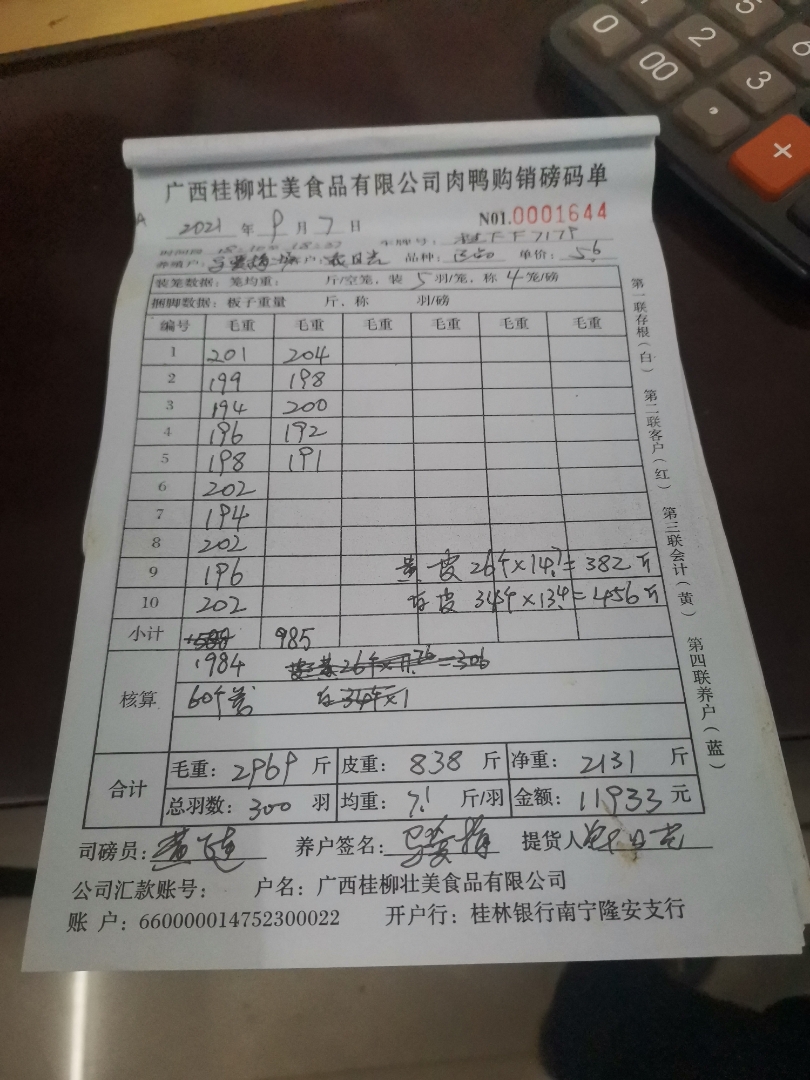 0
00
2
3
5
6
·
×
广西桂柳壮美食品有限公司肉鸭购销磅码单
2021 年 9 月 7 日 N01.0001644
车牌号：
养殖户： 客户： 品种： 单价： 5.6
装笼数据：笼均重： 斤/空笼，装 5 羽/笼，称 4 笼/磅
捆脚数据：板子重量 斤，称 羽/磅
编号 毛重 毛重 毛重 毛重 毛重 毛重
1 201 204
2 199 198
3 194 200
4 196 192
5 198 191
6 202
7 194
8 202
9 196 黄皮 26个×14.7=382斤
10 202 34个×13.4=456斤
小计 985
核算 1984
60个
合计 毛重：2969 斤 皮重：838 斤 净重：2131 斤
总羽数：300 羽 均重：7.1 斤/羽 金额：11933 元
司磅员： 养户签名： 提货人
公司汇款账号： 户名：广西桂柳壮美食品有限公司
账 户：660000014752300022 开户行：桂林银行南宁隆安支行
第一联存根（白） 第二联客户（红） 第三联会计（黄） 第四联养户（蓝）